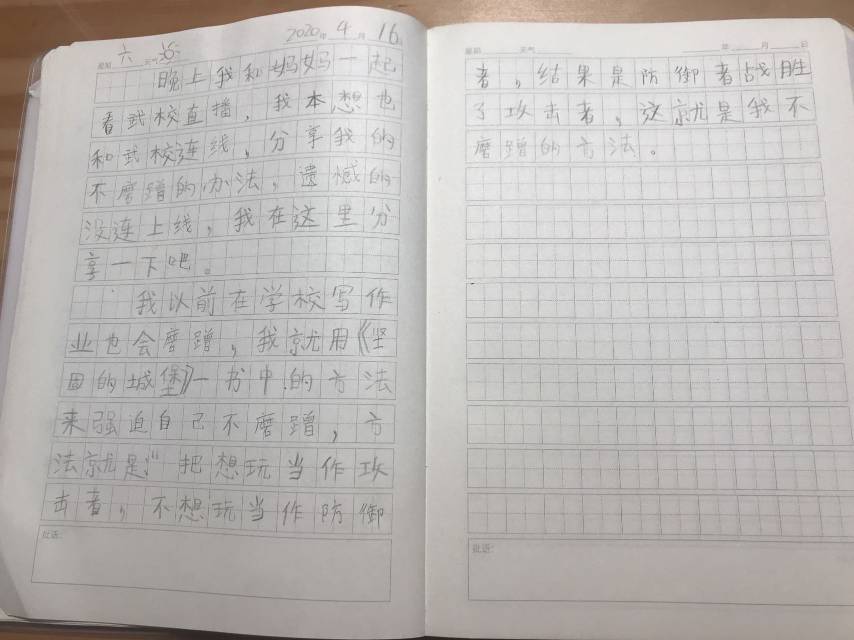 2020年4月16日
星期六 天气
晚上我和妈妈一起
看武校直播，我本想也
和武校连线，分享我的
不磨蹭的办法，遗憾的
没连上线，我在这里分
享一下吧。
我以前在学校写作
业也会磨蹭，我就用《坚
固的城堡》一书中的方法
来强迫自己不磨蹭，方
法就是：“把想玩当作攻
击者，不想玩当作防御
批语：
星期 天气 年 月 日
者，结果是防御者战胜
了攻击者，这就是我不
磨蹭的方法。
批语：